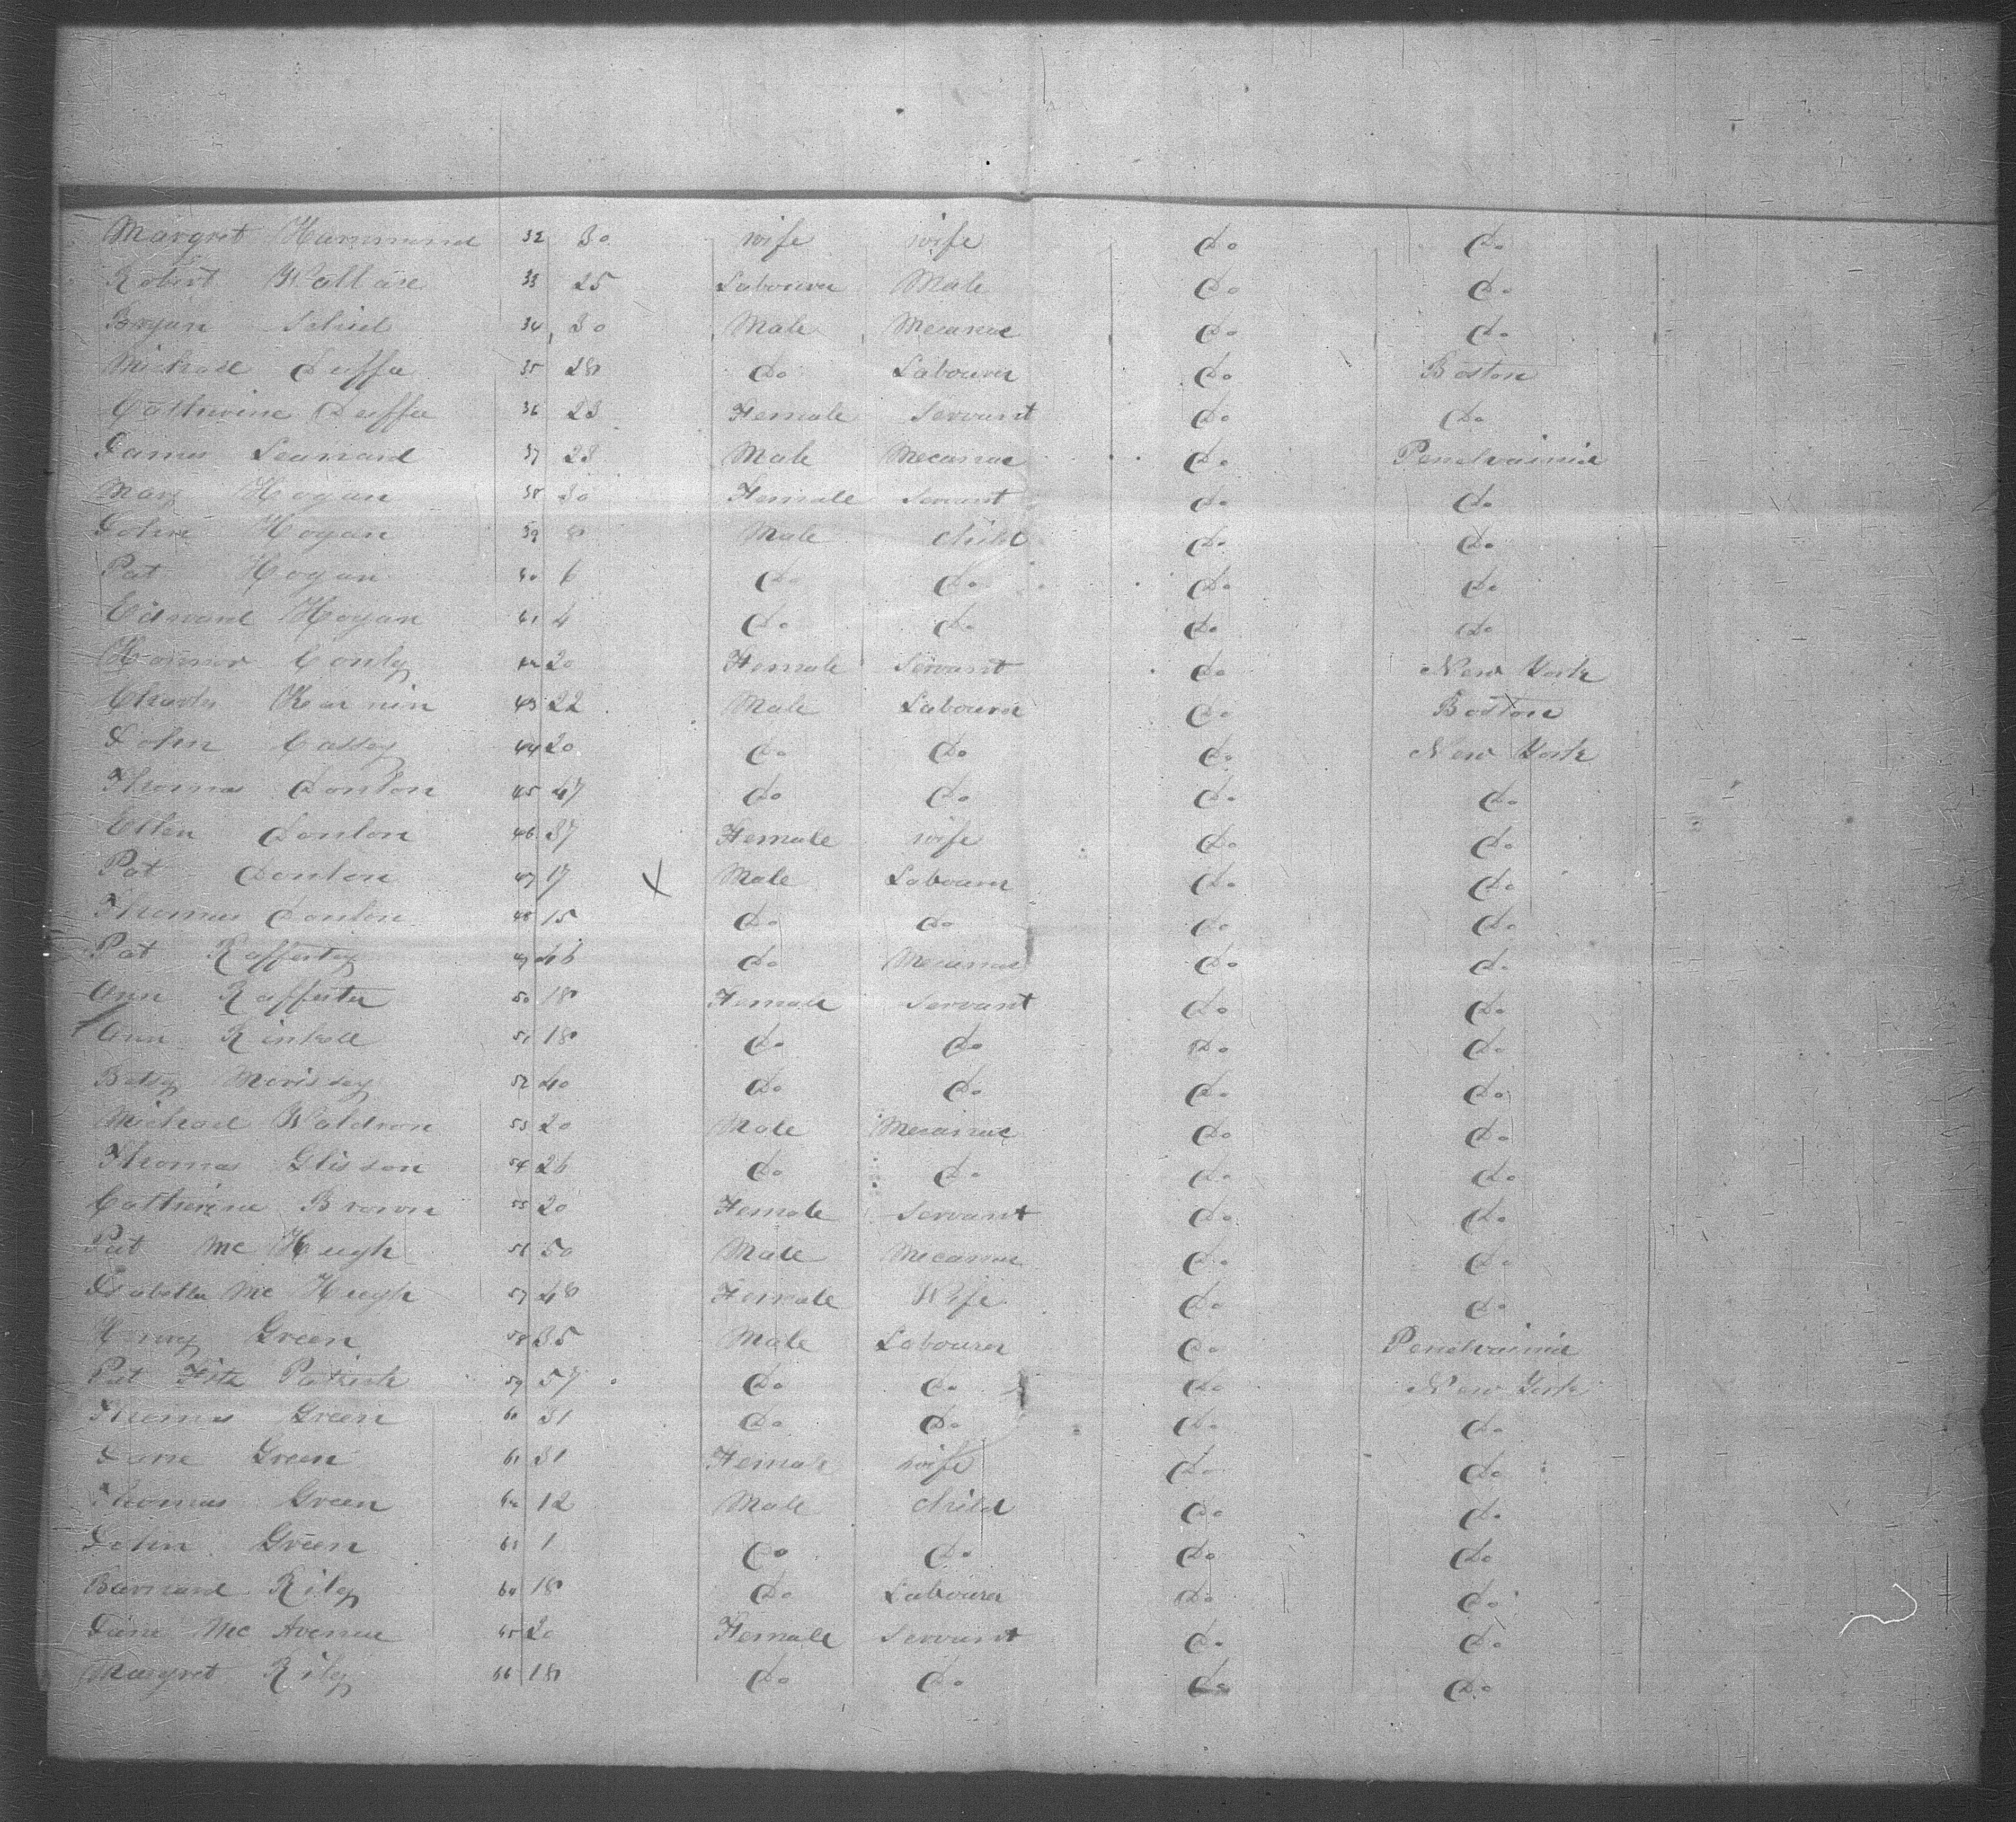 Margret Hammond 32 30 wife wife do do
Robert Wallase 33 25 Labourer Male do do
Bryan 34 30 Male Mecanic do do
Michall Duffa 35 28 do Labourer do Boston
Catherine Duffa 36 23 Female Servant do do
James Leanard 37 28 Male Mecanic do Penelvainia
Mary Hogan 38 30 Female Servant do do
John Hogan 39 8 Male child do do
Pat Hogan 40 6 do do do do
Edward Hogan 41 4 do do do do
Honner Conly 42 20 Female Servant do New York
Charles 43 22 Male Labourer do Boston
John Cassey 44 20 do do do New York
Thomas Donlon 45 47 do do do do
Ellen Donlon 46 37 Female wife do do
Pat Donlon 47 17 X Male Labourer do do
Thomas Donlon 48 15 do do do do
Pat Raffertey 49 46 do Mecanic do do
Ann Rafferter 50 18 Female Servant do do
Ann 51 18 do do do do
Betsy Morissey 52 40 do do do do
Michael Waldron 53 20 Male Mecanic do do
Thomas Glisson 54 26 do do do do
Catherine Brown 55 20 Female Servant do do
Pat Mc Hugh 56 50 Male Mecanic do do
Isabella Mc Hugh 57 48 Female Wife do do
Henry Green 58 35 Male Labourer do Penelvainia
Pat Fitz Patrick 59 57 do do do New York
Thomas Green 60 31 do do do do
Jane Green 61 31 Female wife do do
Thomas Green 62 12 Male child do do
John Green 63 1 do do do do
Barnard Rily 64 18 do Labourer do do
Jane Mc Avenue 65 20 Female Servant do do
Margret Rily 66 18 do do do do